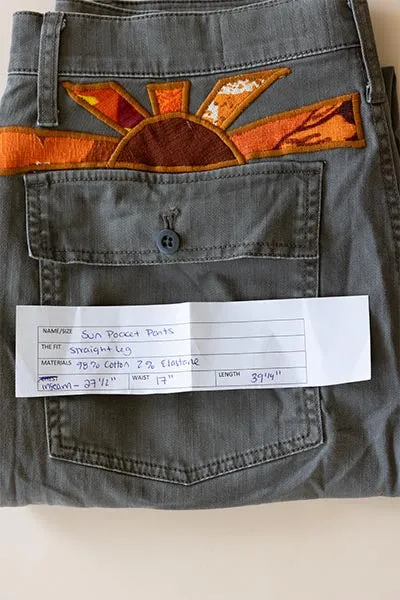 NAME/SIZE Sun Pocket Pants
THE FIT Straight Leg
MATERIALS 98% Cotton 2% Elastane
inseam - 27 1/2" WAIST 17" LENGTH 39 1/4"